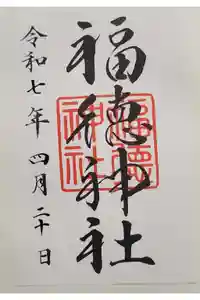 福徳神社
福徳
神社
令和七年 四月二十日